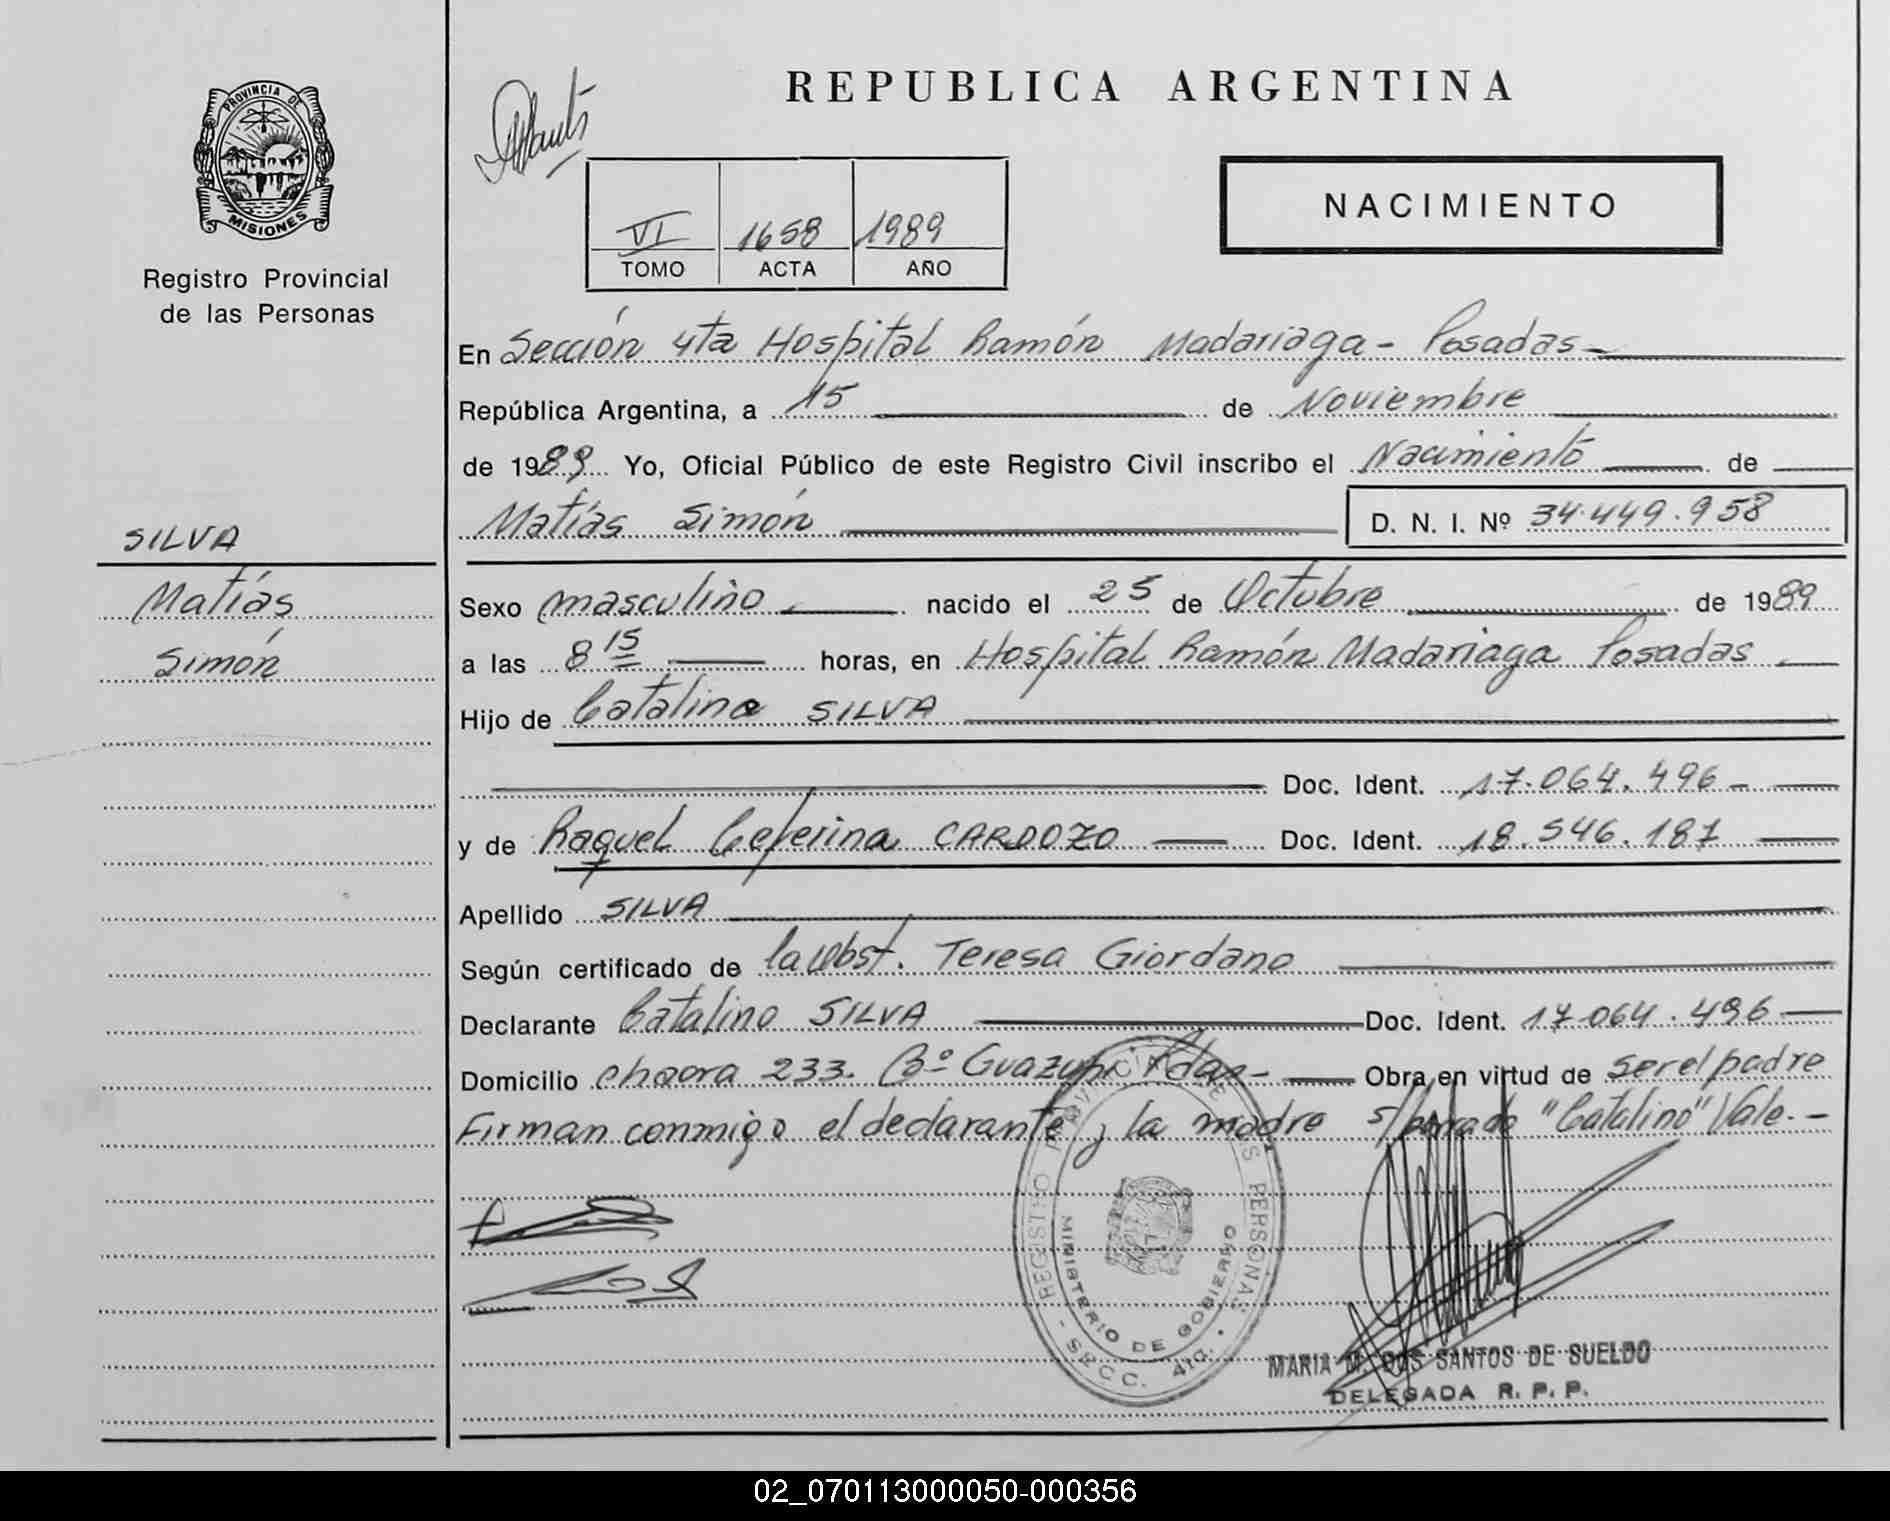 PROVINCIA DE
MISIONES
Registro Provincial
de las Personas
SILVA
Matías
Simón
REPUBLICA ARGENTINA
NACIMIENTO
VI 1658 1989
TOMO ACTA AÑO
En Sección 4ta Hospital Ramón Madariaga - Posadas -
República Argentina, a 15 de Noviembre
de 1989 Yo, Oficial Público de este Registro Civil inscribo el Nacimiento de
Matías Simón D. N. I. Nº 34.449.958
Sexo masculino nacido el 25 de Octubre de 1989
a las 8 15 horas, en Hospital Ramón Madariaga Posadas
Hijo de Catalino SILVA
Doc. Ident. 17.064.496
y de Raquel Ceferina CARDOZO Doc. Ident. 18.546.187
Apellido SILVA
Según certificado de la Obst. Teresa Giordano
Declarante Catalino SILVA Doc. Ident. 17.064.496
Domicilio chacra 233. Bº Guazupi Pdas - Obra en virtud de ser el padre
Firman conmigo el declarante y la madre s/borrado "Catalino" Vale. -
REGISTRO PROVINCIAL DE LAS PERSONAS
MINISTERIO DE GOBIERNO
- SECC. 4ta. -
MARIA M. DOS SANTOS DE SUELDO
DELEGADA R. P. P.
02_070113000050-000356